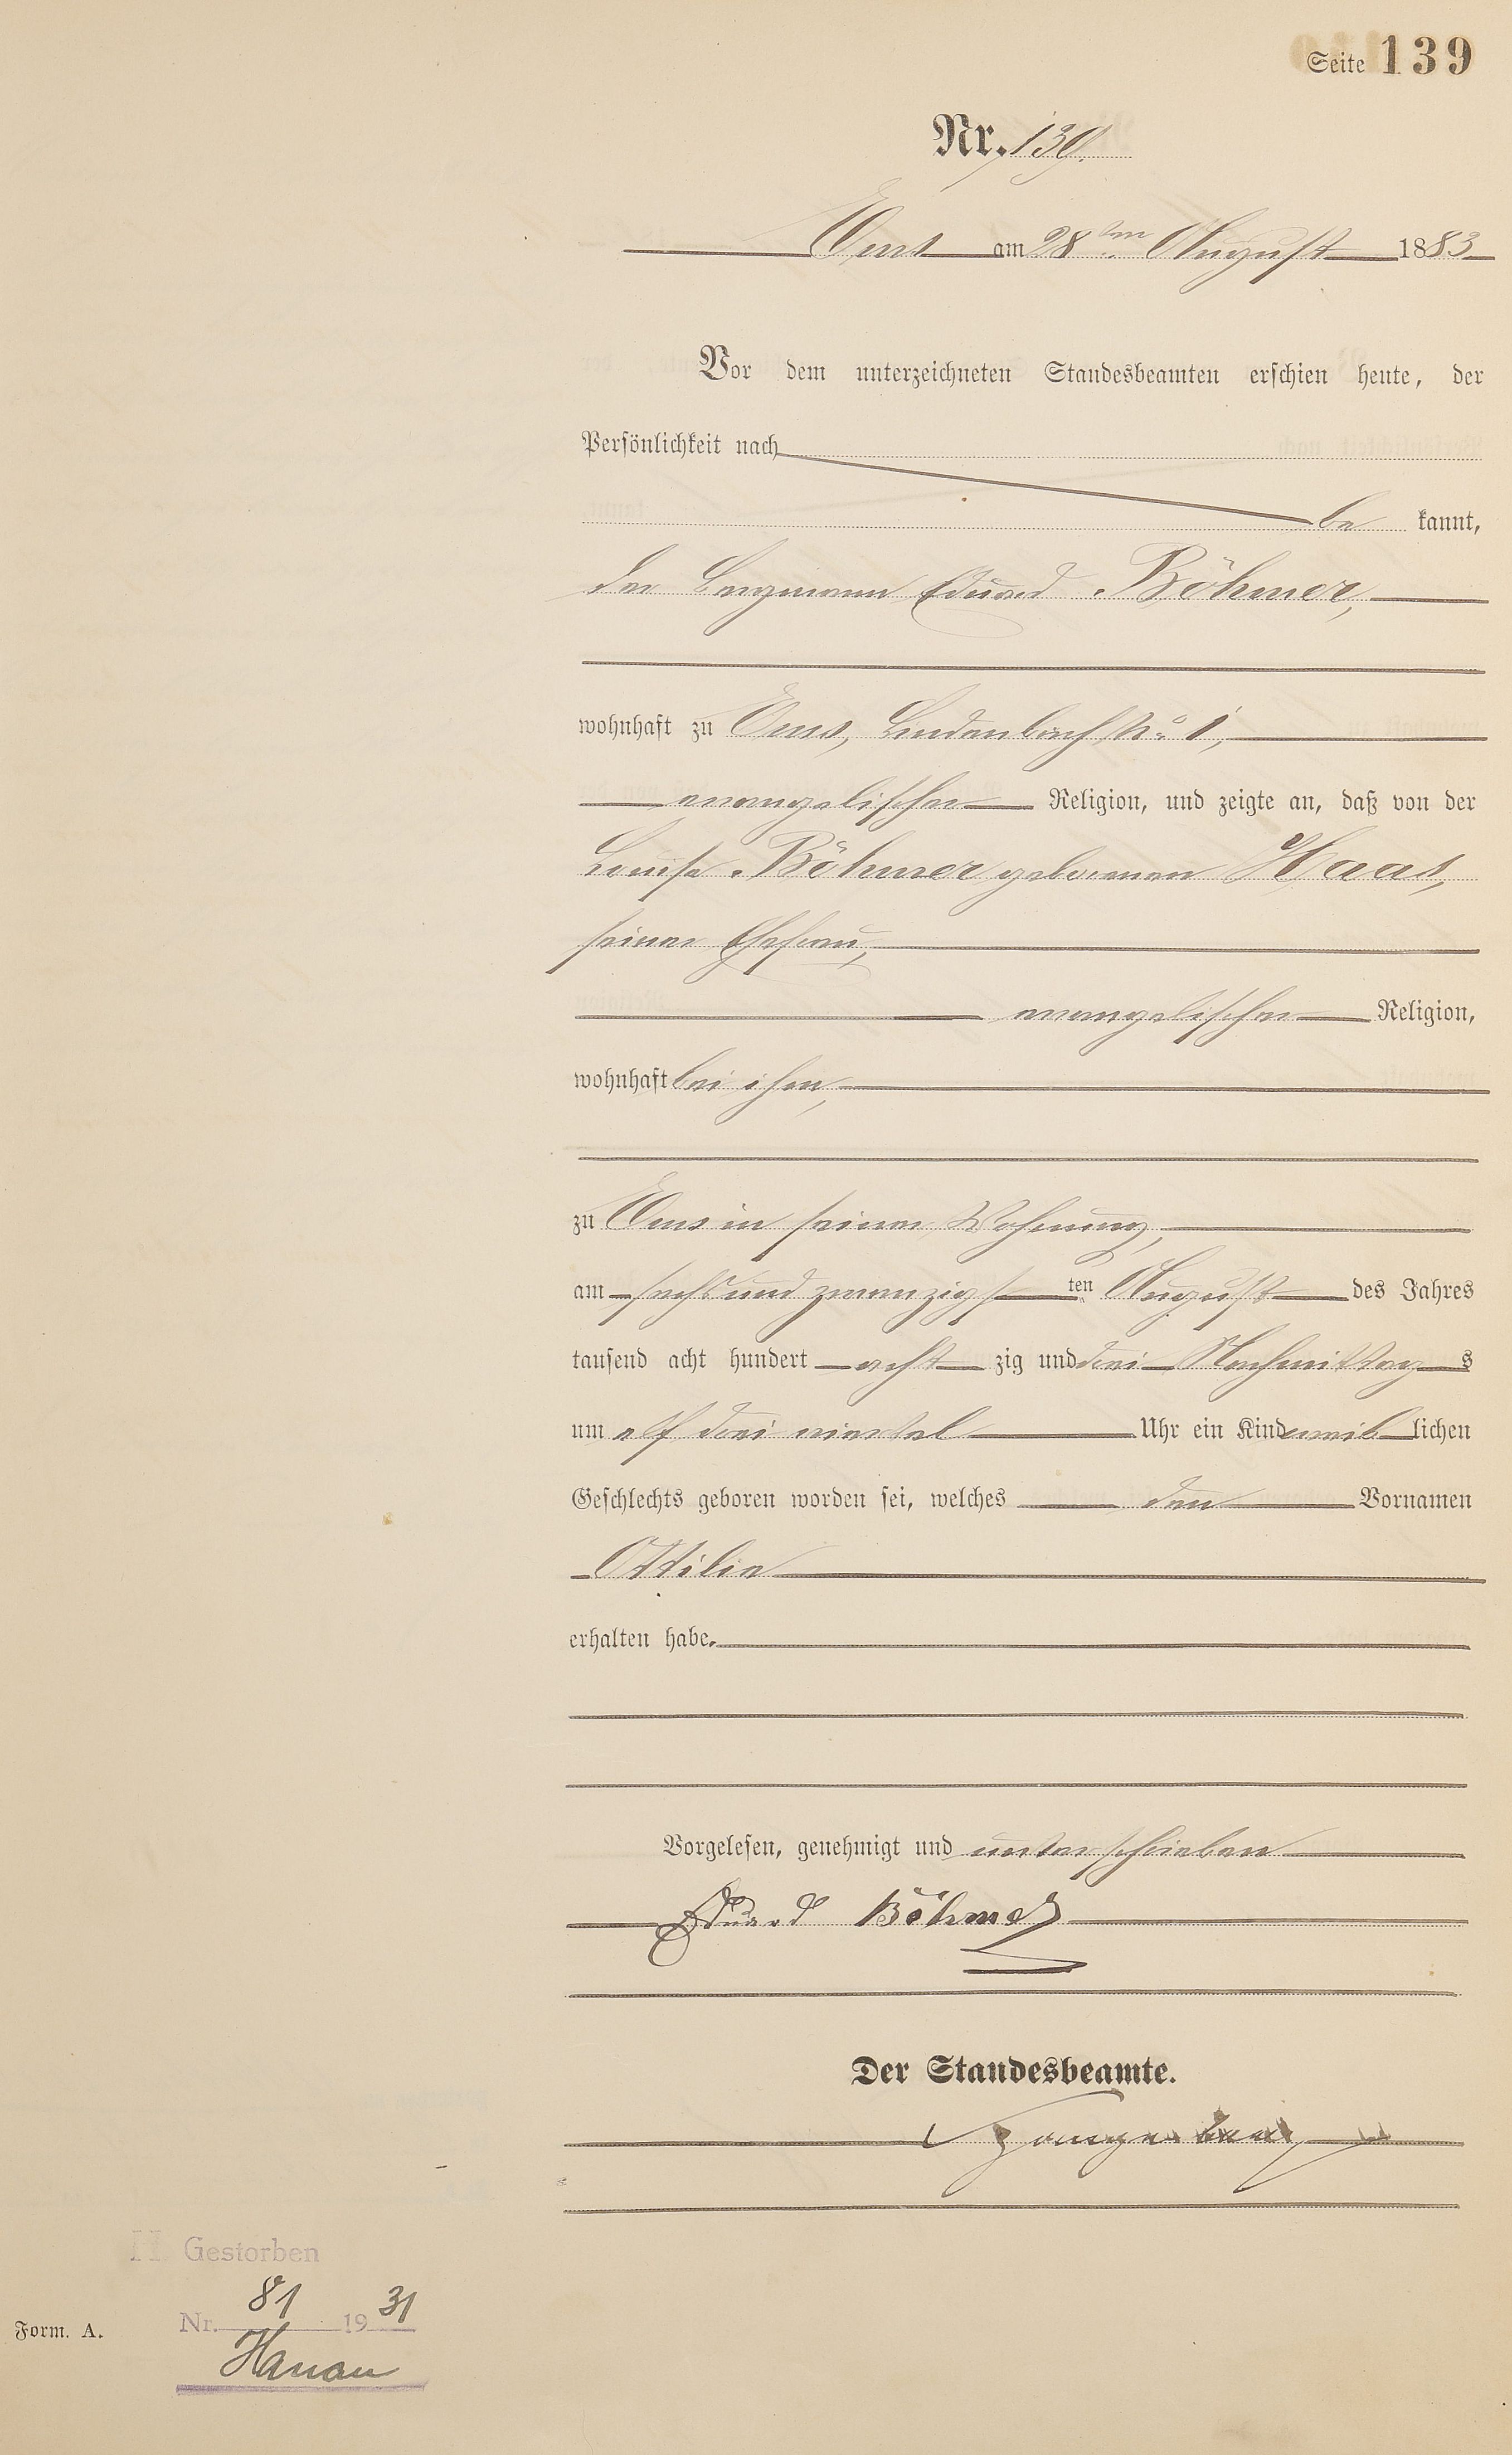 Seite 139
Nr. 139.
Ems am 28ten August 1883
Vor dem unterzeichneten Standesbeamten erschien heute, der
Persönlichkeit nach
be kannt,
der Bergmann Eduard Böhmer,
wohnhaft zu Ems, Lindenbach No 1,
evangelischer Religion, und zeigte an, daß von der
Louise Böhmer geborenen Haas,
seiner Ehefrau,
evangelischer Religion,
wohnhaft bei ihm,
zu Ems in seiner Wohnung,
am sechsundzwanzigsten August des Jahres
tausend acht hundert acht zig und drei Nachmittags
um elf drei viertel Uhr ein Kind weiblichen
Geschlechts geboren worden sei, welches den Vornamen
Ottilie
erhalten habe.
Vorgelesen, genehmigt und unterschrieben
Eduard Böhmer
Der Standesbeamte.
H Gestorben
Nr. 81 1931
Form. A.
Hanau